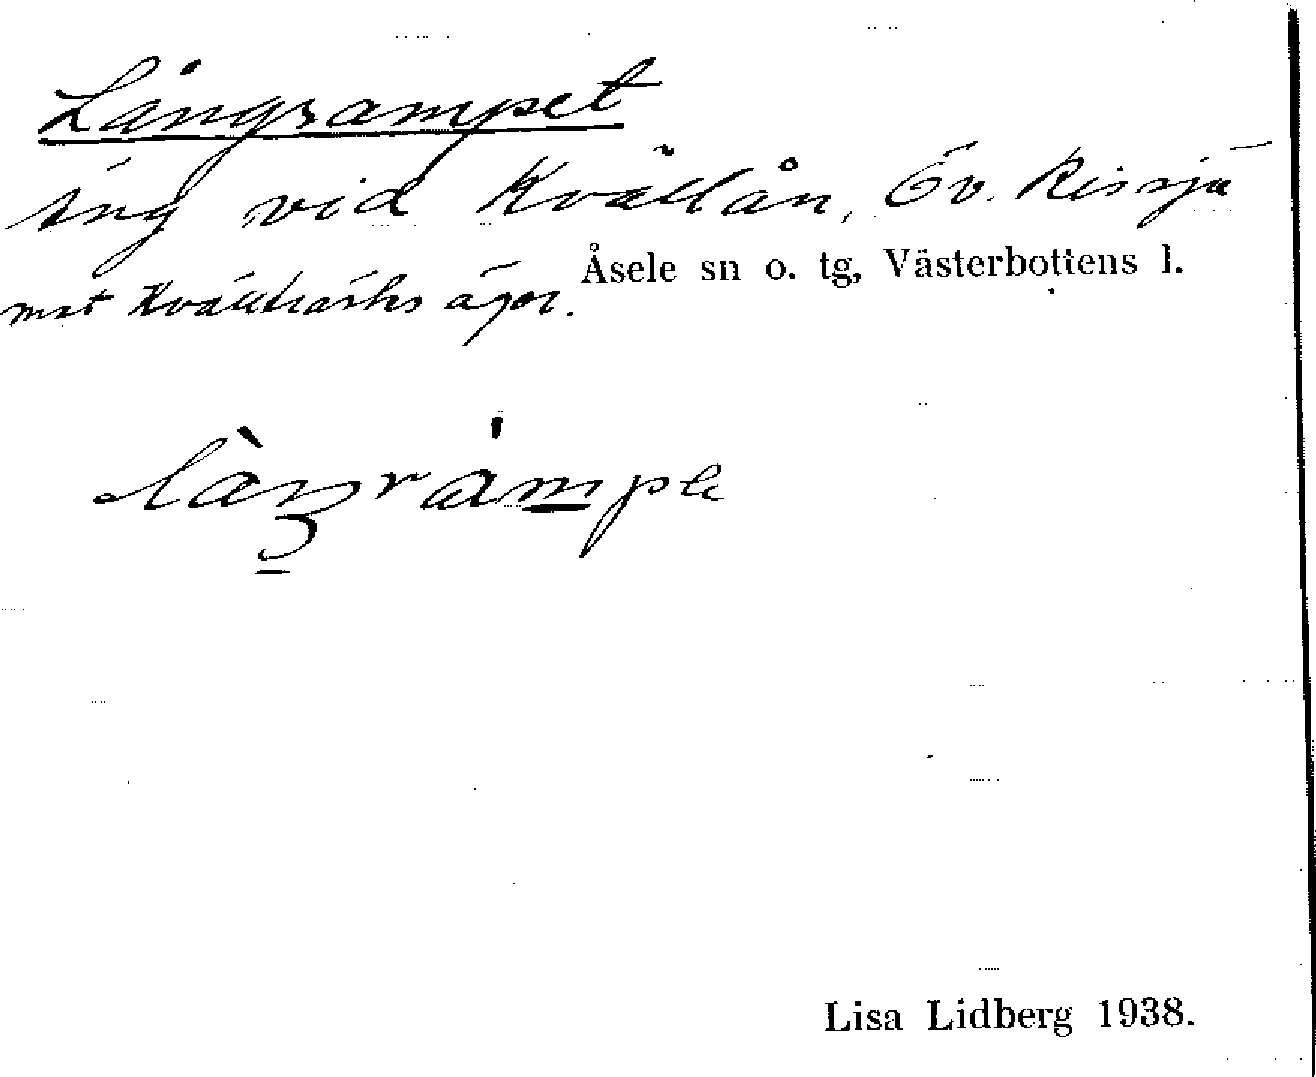 Långrampet
äng vid Kvällån, Öv. Rissjö
Åsele sn o. tg, Västerbottens l.
mot Kvällträsks ägor.
Lisa Lidberg 1938.